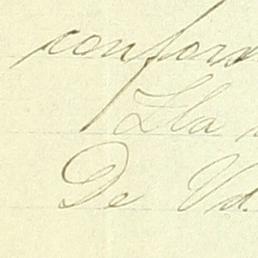 conform
Lla
De Vd.